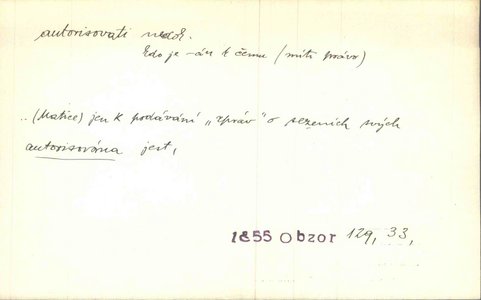 autorisovati nedok.
kdo je -án k čemu (míti právo)
.. (Matice) jen k podávání „zpráv" o sezeních svých
autorisována jest,
1855 Obzor 129, 33,